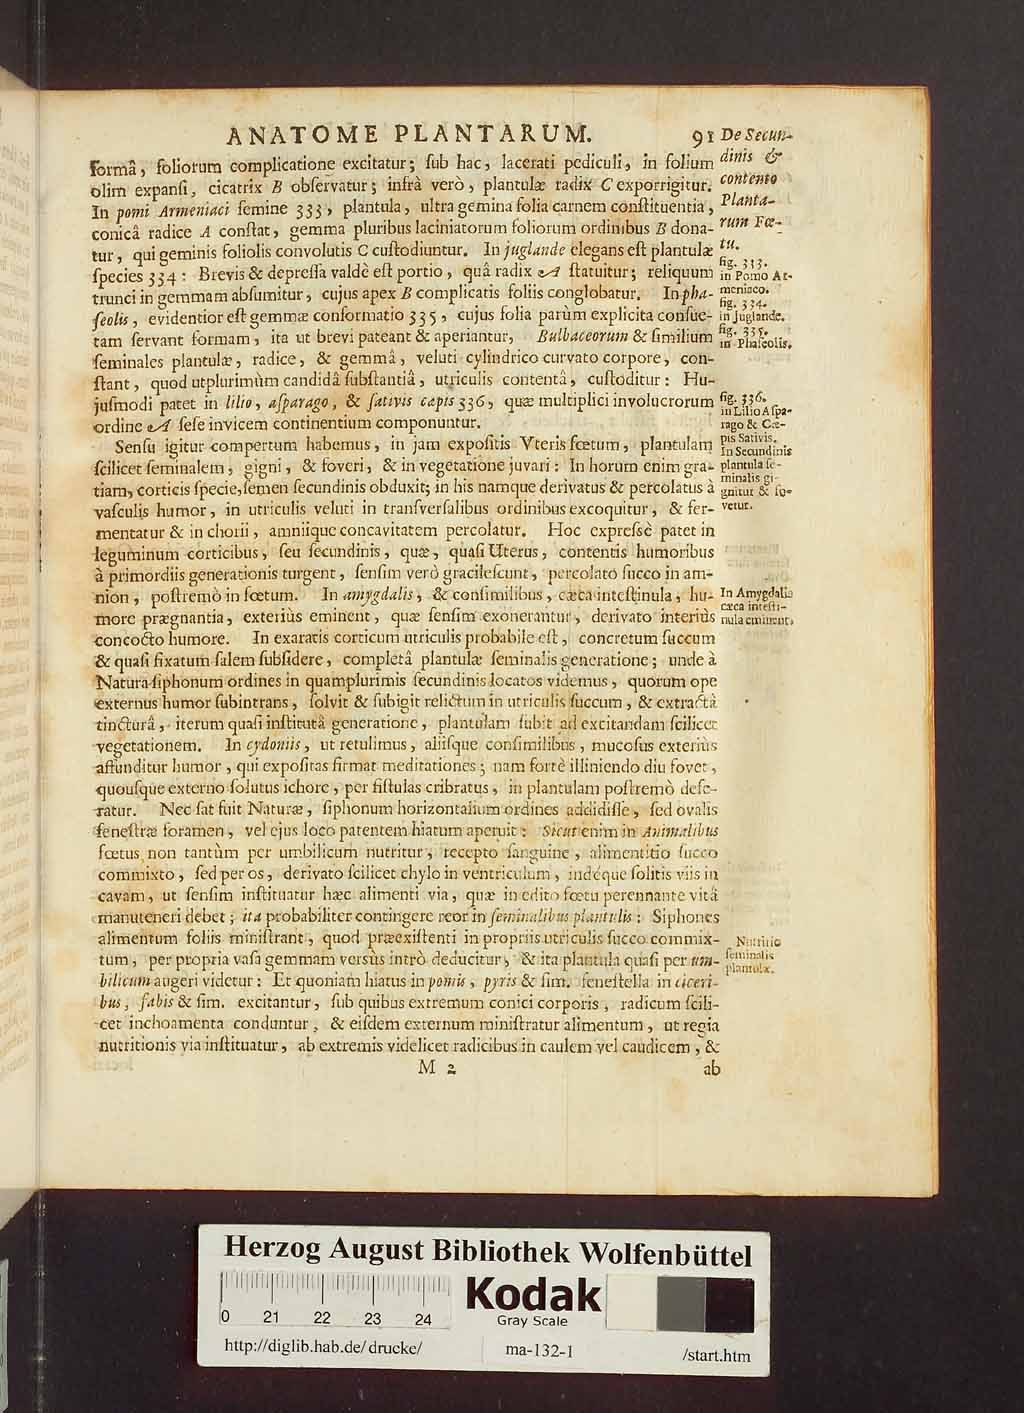 ANATOME PLANTARUM. 91
formâ, foliorum complicatione excitatur; ſub hac, lacerati pediculi, in folium
olim expanſi, cicatrix B obſervatur; infrà verò, plantulæ radix C exporrigitur.
In pomi Armeniaci ſemine 333, plantula, ultra gemina folia carnem conſtituentia,
conicâ radice A conſtat, gemma pluribus laciniatorum foliorum ordinibus B dona-
tur, qui geminis foliolis convolutis C cuſtodiuntur. In juglande elegans eſt plantulæ
ſpecies 334: Brevis & depreſſa valdè eſt portio, quâ radix A ſtatuitur; reliquum
trunci in gemmam abſumitur, cujus apex B complicatis foliis conglobatur. In pha-
ſeolis, evidentior eſt gemmæ conformatio 335, cujus folia parùm explicita conſue-
tam ſervant formam, ita ut brevi pateant & aperiantur, Bulbaceorum & ſimilium
ſeminales plantulæ, radice, & gemmâ, veluti cylindrico curvato corpore, con-
ſtant, quod utplurimùm candidâ ſubſtantiâ, utriculis contentâ, cuſtoditur: Hu-
juſmodi patet in lilio, aſparago, & ſativis capis 336, quæ multiplici involucrorum
ordine A ſeſe invicem continentium componuntur.
Senſu igitur compertum habemus, in jam expoſitis Uteris fœtum, plantulam
ſcilicet ſeminalem, gigni, & foveri, & in vegetatione juvari: In horum enim gra-
tiam, corticis ſpecie, ſemen ſecundinis obduxit; in his namque derivatus & percolatus à
vaſculis humor, in utriculis veluti in tranſverſalibus ordinibus excoquitur, & fer-
mentatur & in chorii, amniique concavitatem percolatur. Hoc expreſsè patet in
leguminum corticibus, ſeu ſecundinis, quæ, quaſi Uterus, contentis humoribus
à primordiis generationis turgent, ſenſim verò gracileſcunt, percolato ſucco in am-
nion, poſtremò in fœtum. In amygdalis, & conſimilibus, cæca inteſtinula, hu-
more prægnantia, exteriùs eminent, quæ ſenſim exonerantur, derivato interiùs
concocto humore. In exaratis corticum utriculis probabile eſt, concretum ſuccum
& quaſi fixatum ſalem ſubſidere, completâ plantulæ ſeminalis generatione; unde à
Natura ſiphonum ordines in quamplurimis ſecundinis locatos videmus, quorum ope
externus humor ſubintrans, ſolvit & ſubigit relictum in utriculis ſuccum, & extractâ
tincturâ, iterum quaſi inſtitutâ generatione, plantulam ſubit ad excitandam ſcilicet
vegetationem. In cydoniis, ut retulimus, aliiſque conſimilibus, mucoſus exteriùs
affunditur humor, qui expoſitas firmat meditationes; nam fortè illiniendo diu fovet,
quouſque externo ſolutus ichore, per fiſtulas cribratus, in plantulam poſtremò defe-
ratur. Nec ſat fuit Naturæ, ſiphonum horizontalium ordines addidiſſe, ſed ovalis
feneſtræ foramen, vel ejus loco patentem hiatum aperuit: Sicut enim in Animalibus
fœtus non tantùm per umbilicum nutritur, recepto ſanguine, alimentitio ſucco
commixto, ſed per os, derivato ſcilicet chylo in ventriculum, indéque ſolitis viis in
cavam, ut ſenſim inſtituatur hæc alimenti via, quæ in edito fœtu perennante vitâ
manuteneri debet; ita probabiliter contingere reor in ſeminalibus plantulis: Siphones
alimentum foliis miniſtrant, quod præexiſtenti in propriis utriculis ſucco commix-
tum, per propria vaſa gemmam verſùs intrò deducitur, & ita plantula quaſi per um-
bilicum augeri videtur: Et quoniam hiatus in pomis, pyris & ſim. feneſtella in ciceri-
bus, fabis & ſim. excitantur, ſub quibus extremum conici corporis, radicum ſcili-
cet inchoamenta conduntur, & eiſdem externum miniſtratur alimentum, ut regia
nutritionis via inſtituatur, ab extremis videlicet radicibus in caulem vel caudicem, &
M 2 ab
De Secun-
dinis &
contento
Planta-
rum Fœ-
tu.
fig. 333.
in Pomo Ar-
meniaco.
fig. 334.
in Juglande.
fig. 335.
in Phaſeolis.
fig. 336.
in Lilio Aſpa-
rago & Cæ-
pis Sativis.
In Secundinis
plantula ſe-
minalis gi-
gnitur & fo-
vetur.
In Amygdalis
cæca inteſti-
nula eminent.
Nutritio
ſeminalis
plantulæ.
Herzog August Bibliothek Wolfenbüttel
0 21 22 23 24
Kodak
Gray Scale
http://diglib.hab.de/drucke/ ma-132-1 /start.htm